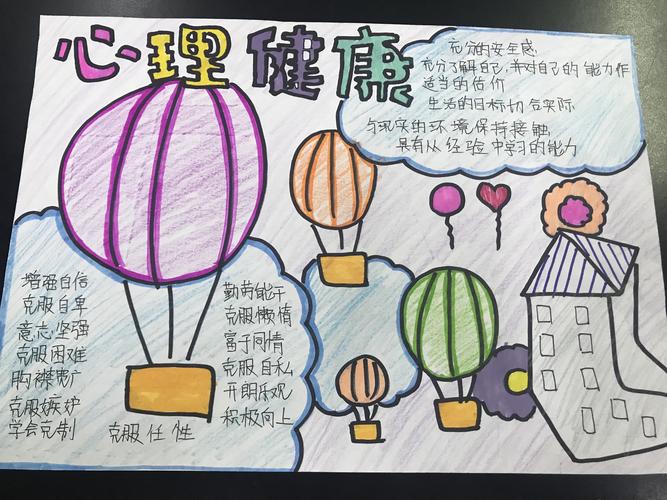 心理健康
充分的安全感
充分了解自己,并对自己的能力作
适当的估价
生活的目标切合实际
与现实的环境保持接触
具有从经验中学习的能力
增强自信
克服自卑
意志坚强
克服困难
胸襟宽广
克服嫉妒
学会克制
克服任性
勤劳能干
克服懒惰
富于同情
克服自私
开朗乐观
积极向上